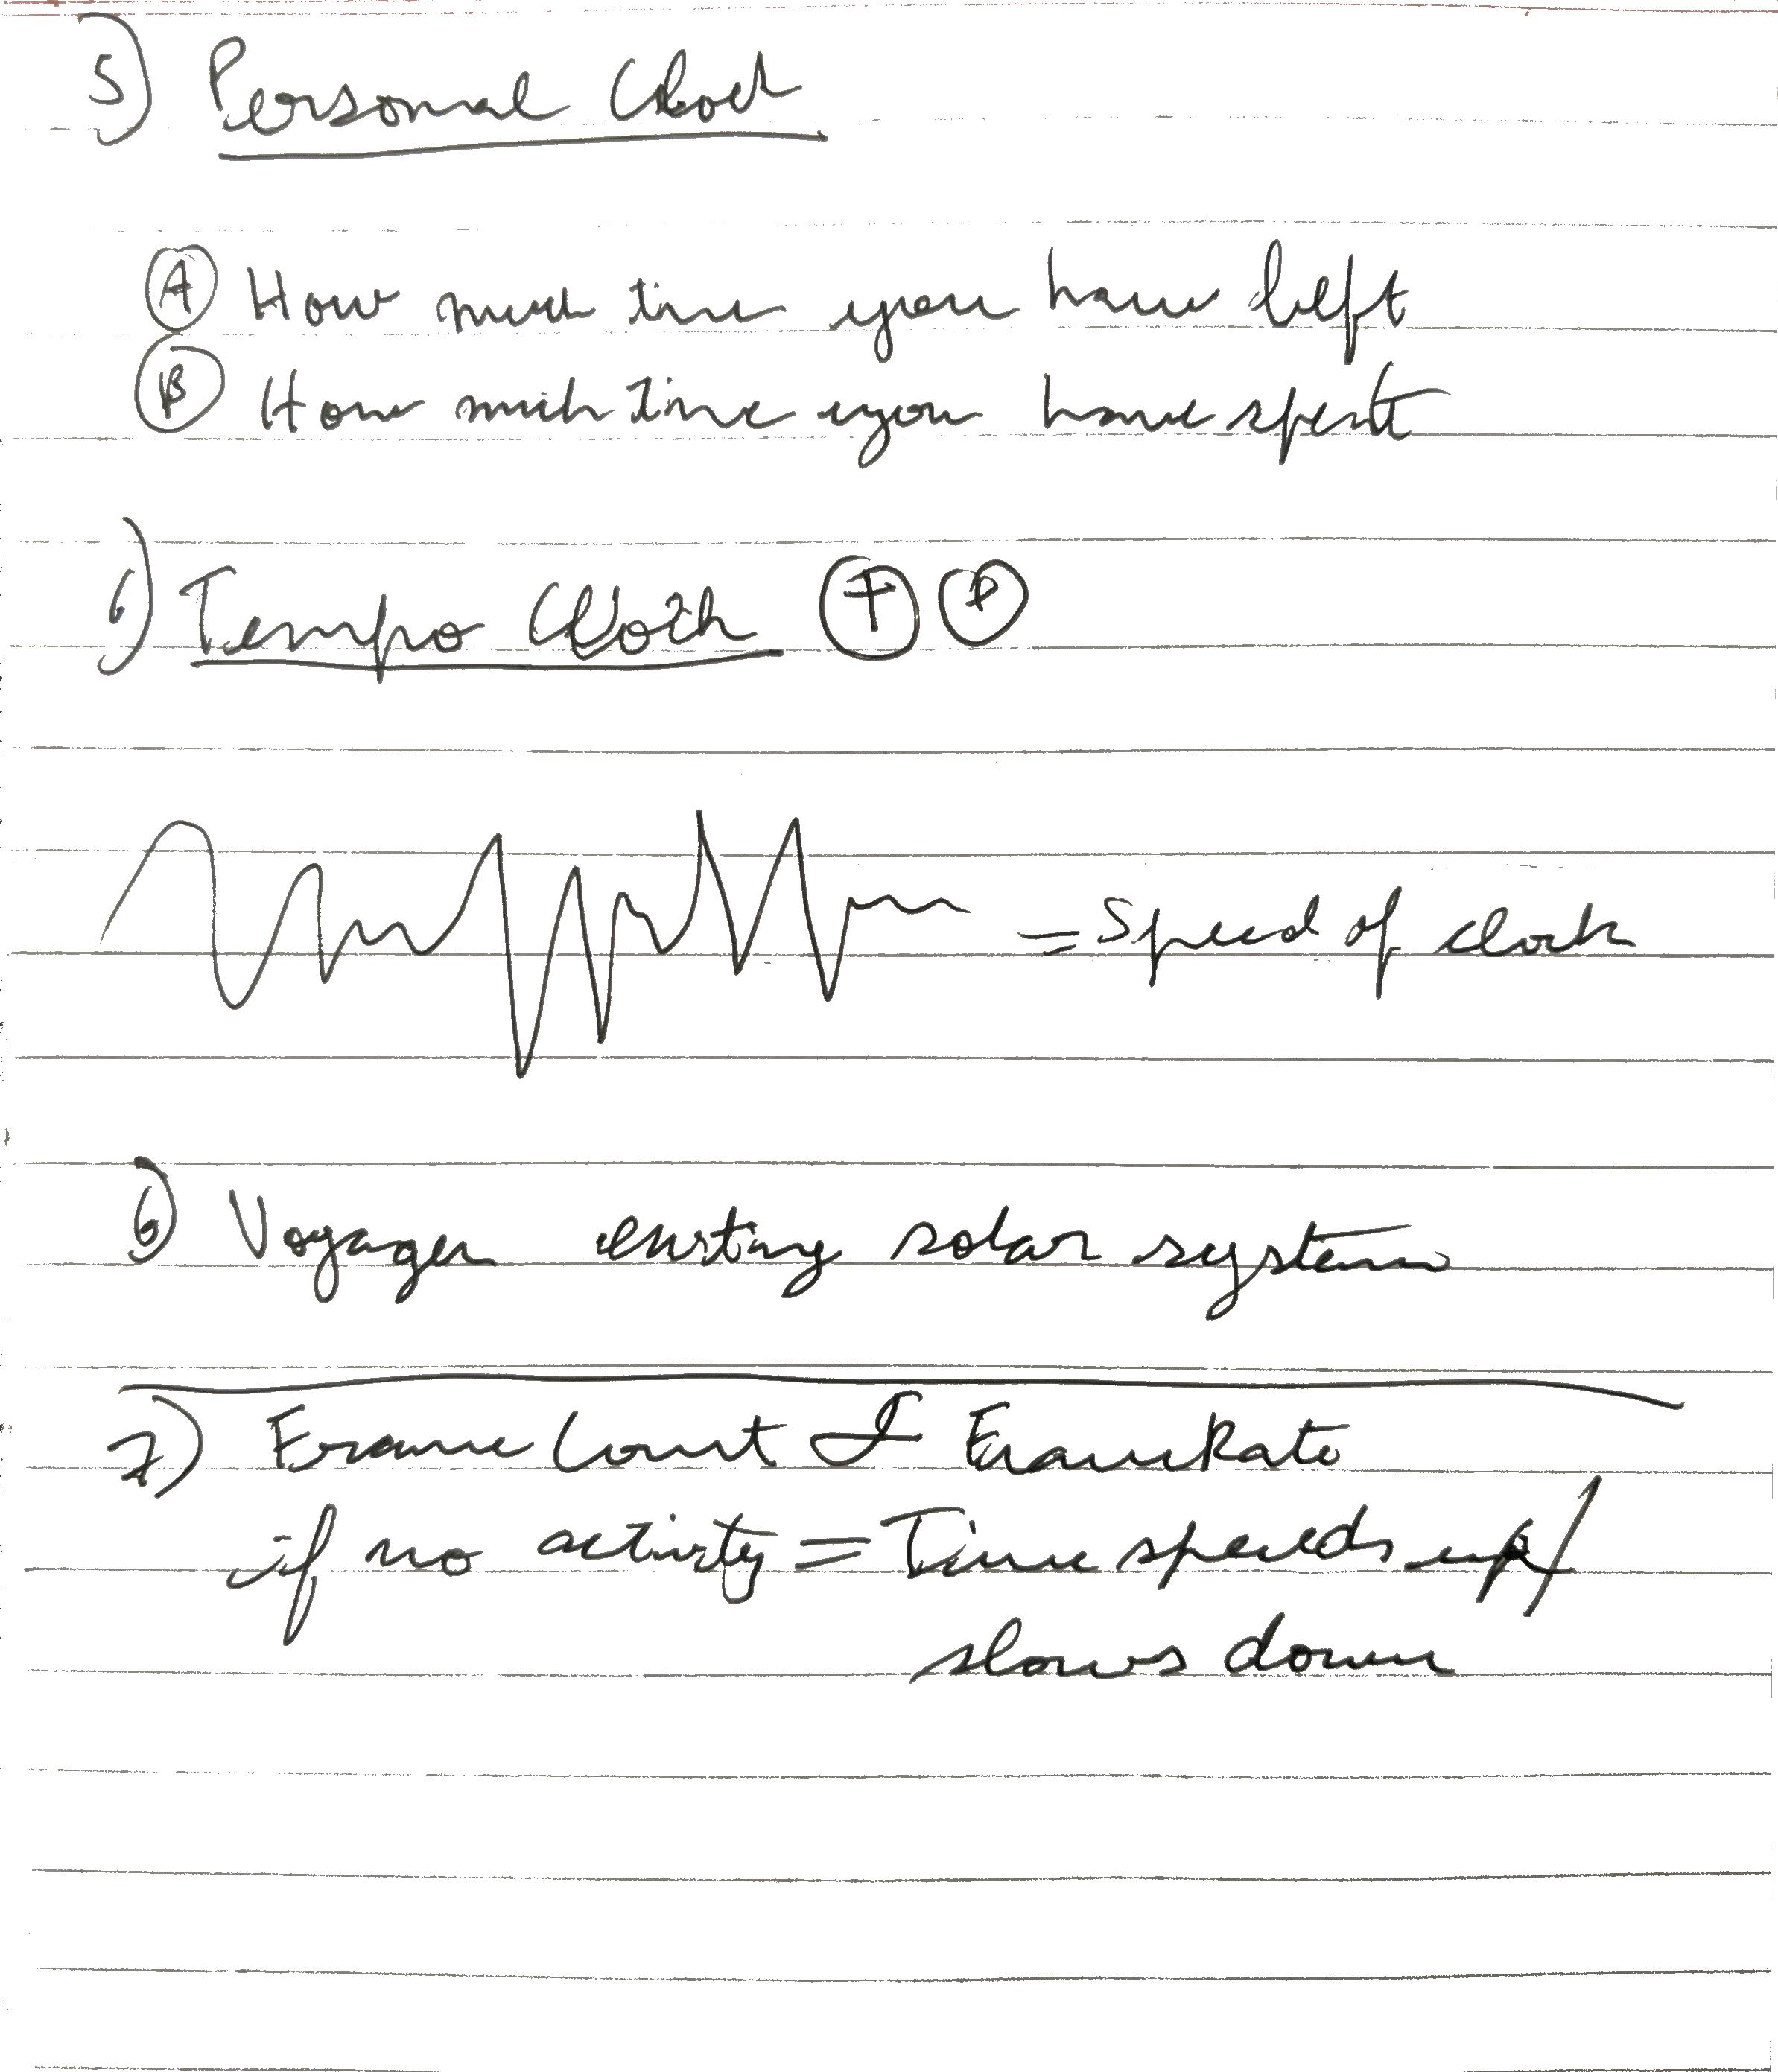 5) Personal Clock
A How much time you have left
B How much time you have spent
6) Tempo Clock T P
= Speed of clock
6) Voyager exiting solar system
7) Frame Count & FrameRate
if no activity = Time speeds up/
slows down